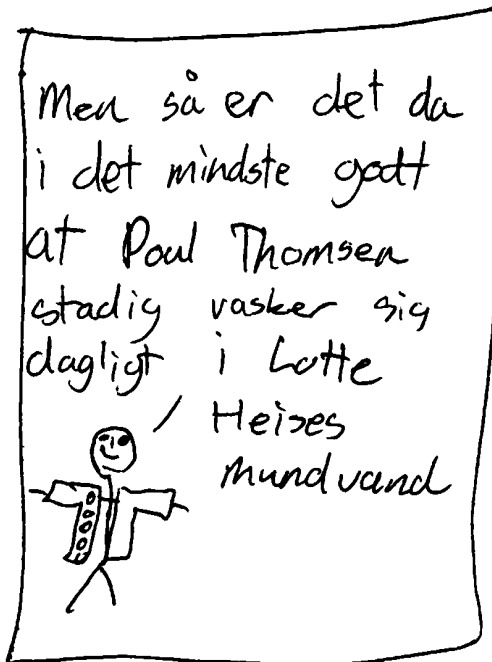 Men så er det da
i det mindste godt
at Poul Thomsen
stadig vasker sig
dagligt i Lotte
Heises
mundvand